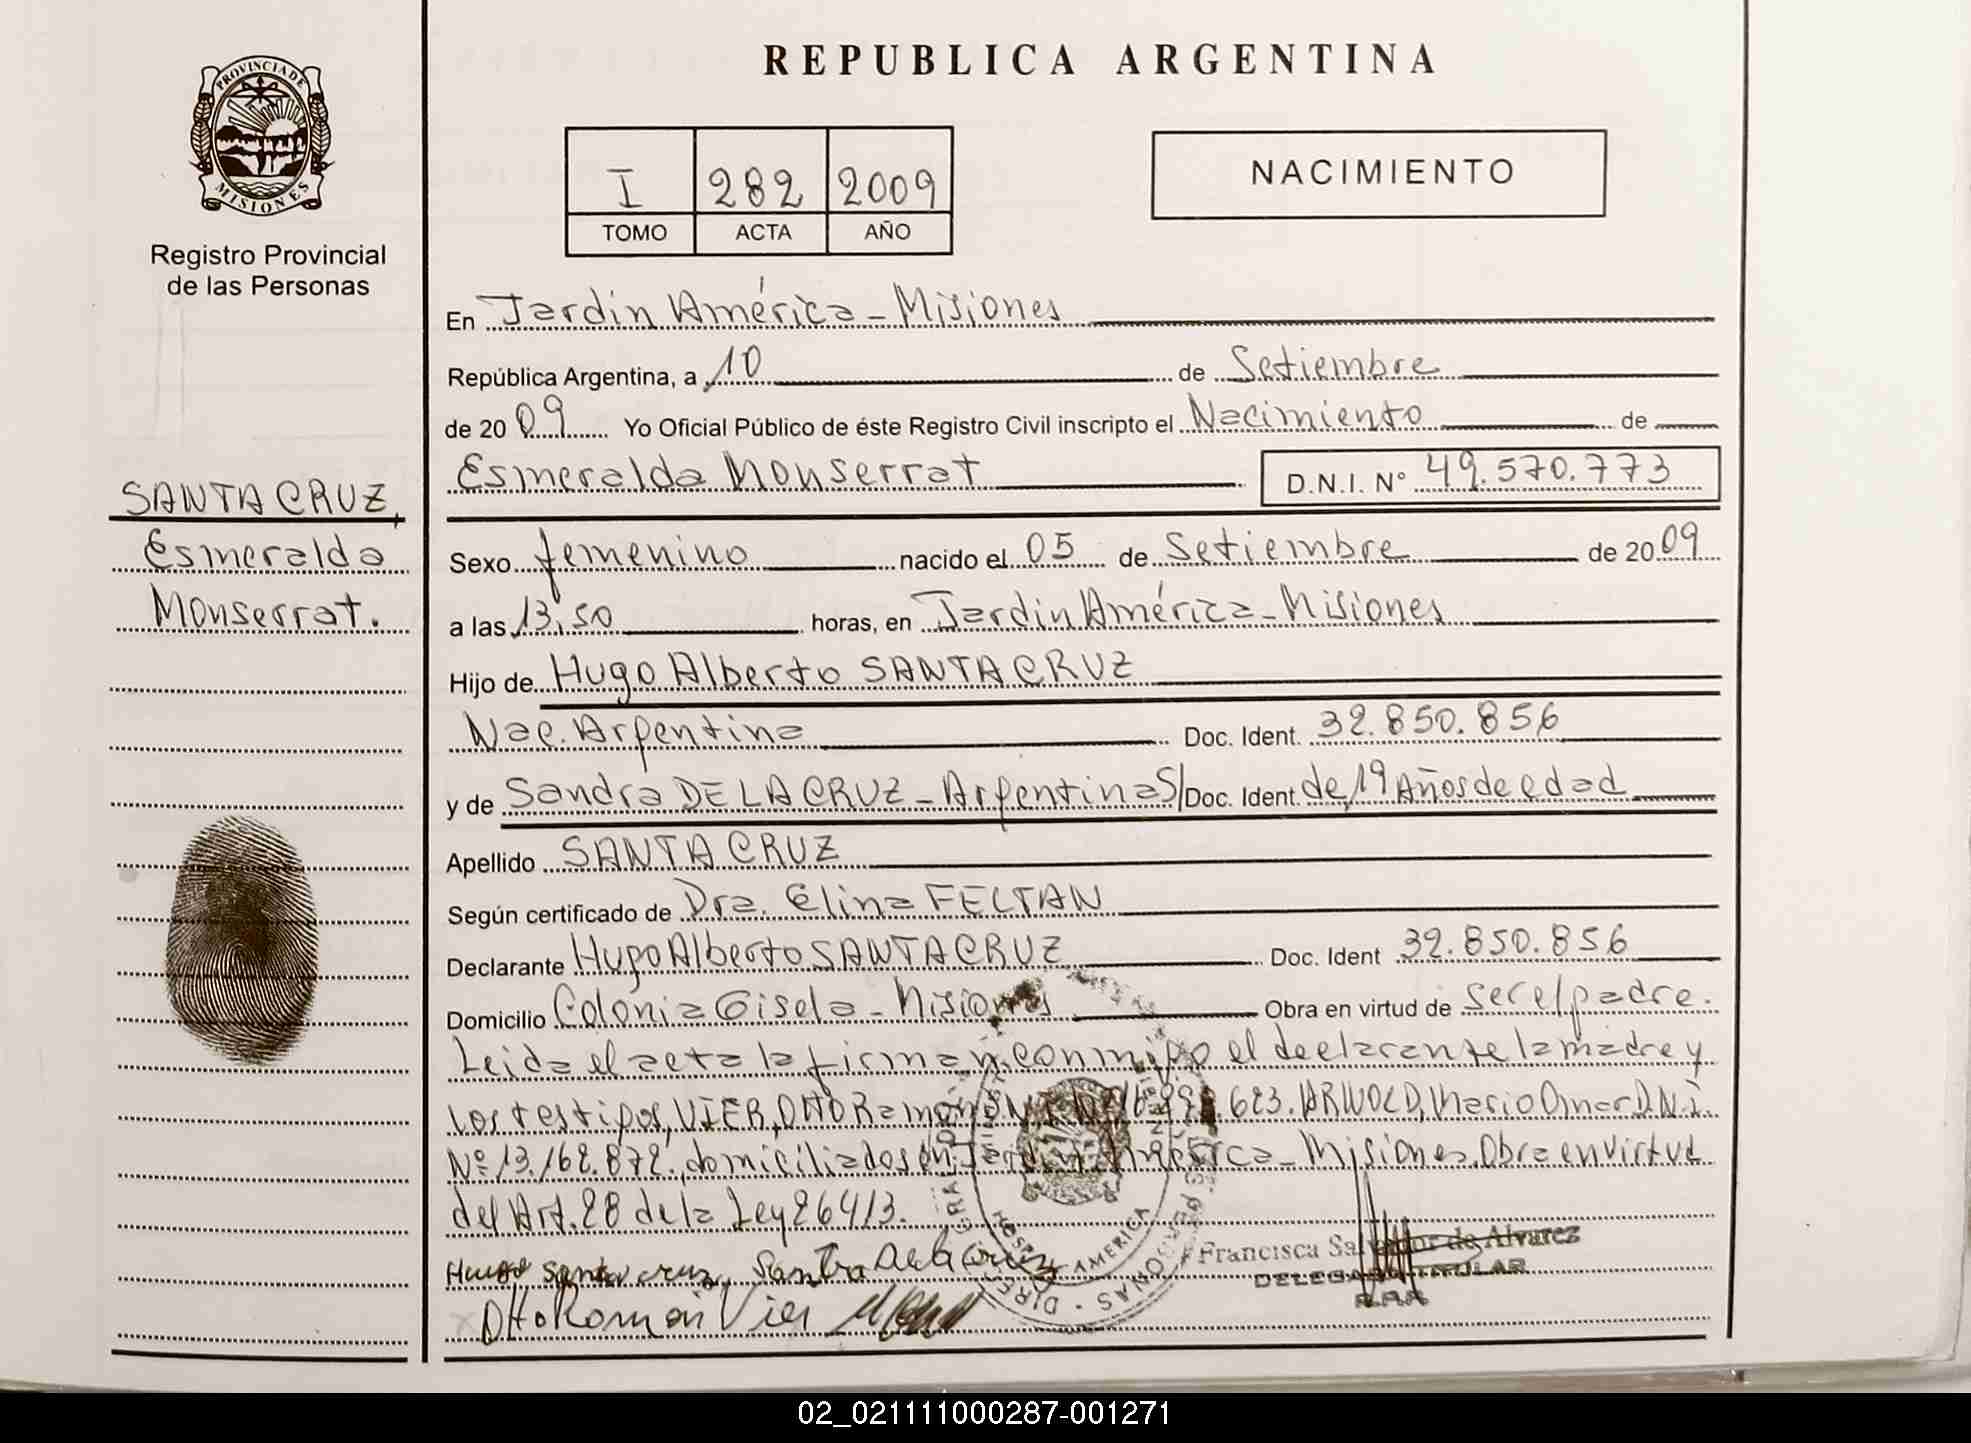 PROVINCIA DE
MISIONES
Registro Provincial
de las Personas
SANTA CRUZ,
Esmeralda
Monserrat.
REPUBLICA ARGENTINA
I 282 2009
TOMO ACTA AÑO
NACIMIENTO
En Jardin América - Misiones
República Argentina, a 10 de Setiembre
de 2009 Yo Oficial Público de éste Registro Civil inscripto el Nacimiento de
Esmeralda Monserrat D.N.I. Nº 49.570.773
Sexo femenino nacido el 05 de Setiembre de 2009
a las 13,50 horas, en Jardin América - Misiones
Hijo de Hugo Alberto SANTA CRUZ
Nac. Argentina Doc. Ident. 32.850.856
y de Sandra DE LA CRUZ - Argentina S/ Doc. Ident. de 19 Años de edad
Apellido SANTA CRUZ
Según certificado de Dra. Elina FELTAN
Declarante Hugo Alberto SANTA CRUZ Doc. Ident 32.850.856
Domicilio Colonia Gisela - Misiones Obra en virtud de ser el padre.
Leida el acta la firman conmigo el declarante la madre y
los testigos, VIER, OTTO Ramon 623. ARNOLD, Mario Omar D.N.I.
Nº 13.162.872. domiciliados en Jardin América - Misiones. Obra en virtud
del Art. 28 de la Ley 26413.
Hugo santa cruz, Sandra De la Cruz
Francisca Salvador de Alvarez
DELEGADO TITULAR
R.P.P.
Otto Ramon Vier
AMERICA
PERSONAS
02_021111000287-001271